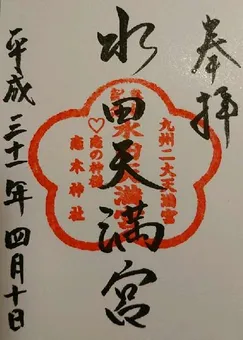 奉拝
水田天満宮
平成三十一年四月十日
九州二大天満宮
恋の神様
恋木神社